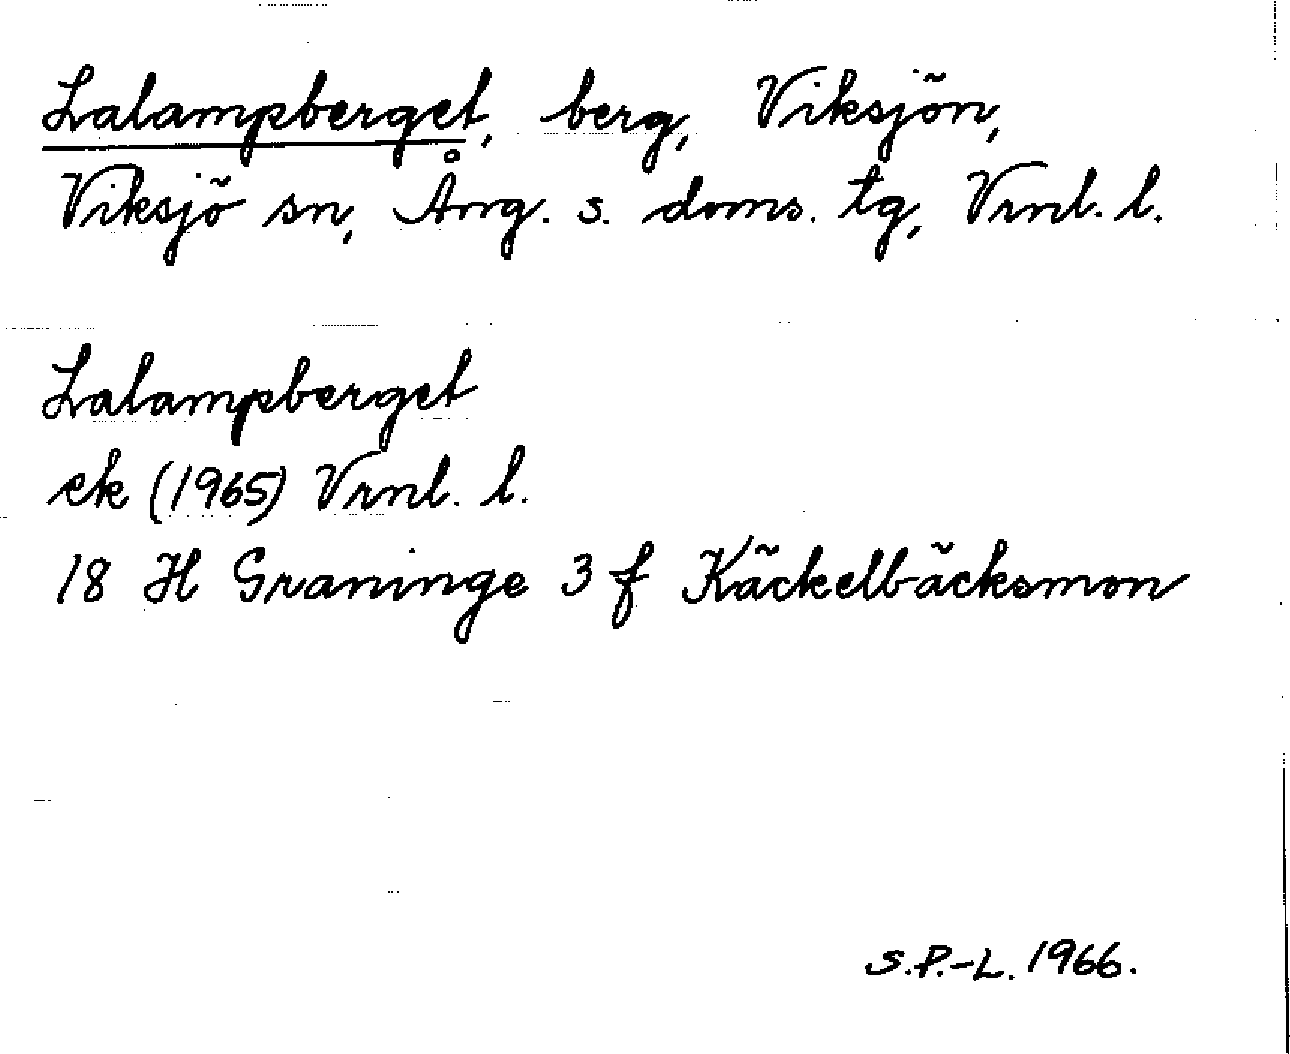 Lalampberget, berg, Viksjön,
Viksjö sn, Ång. s. doms. tg, Vrnl. l.
Lalampberget
ek (1965) Vrnl. l.
18 H Graninge 3 f Käckelbäcksmon
S.P.-L. 1966.